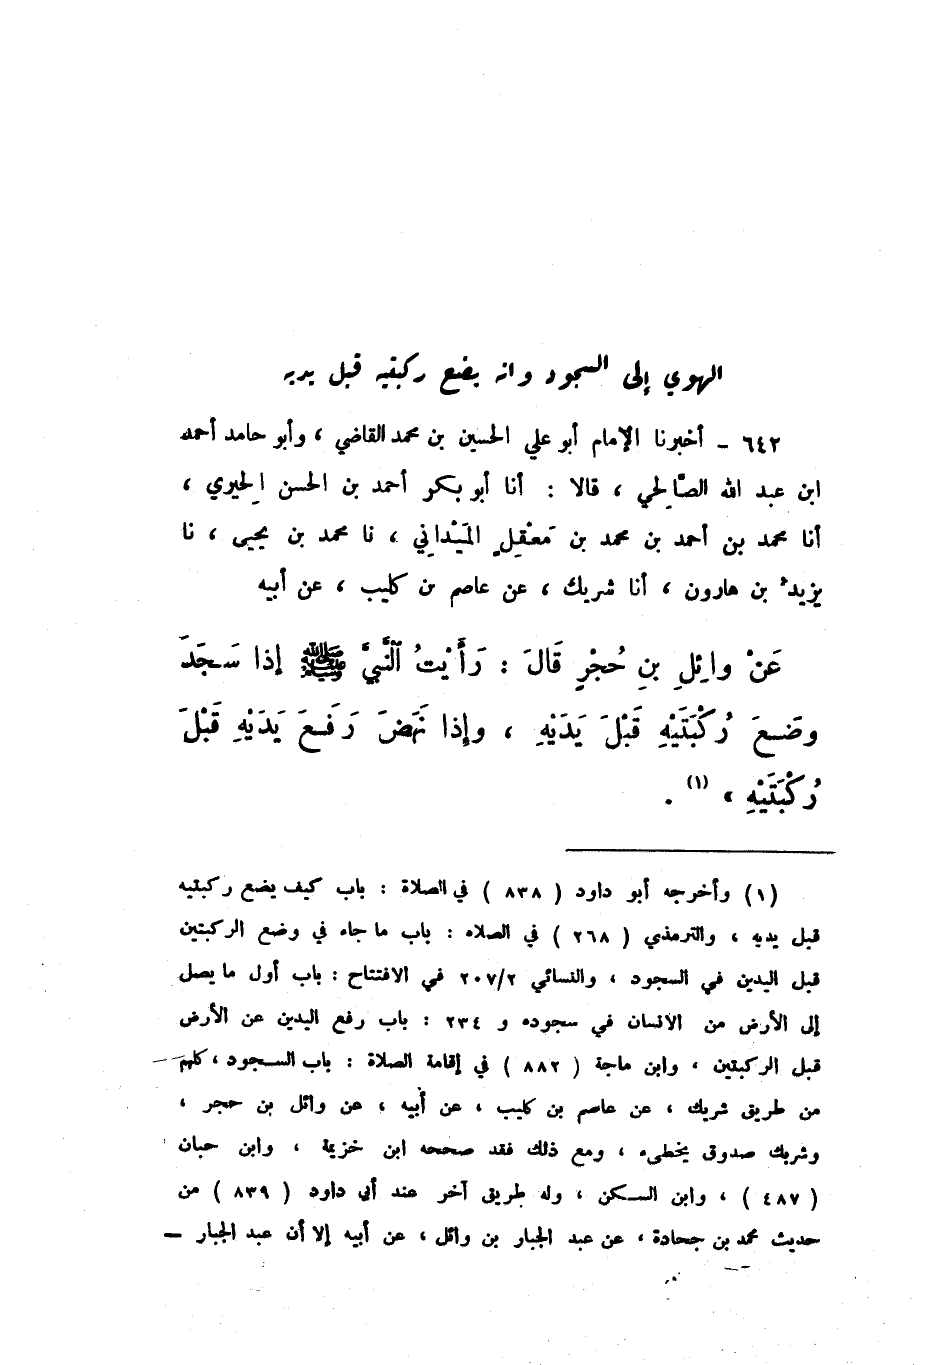 الهوي إلى السجود وانه يضع ركبتيه قبل يديه
٦٤٢ - أخبرنا الإمام أبو علي الحسين بن محمد القاضي ، وأبو حامد أحمد
ابن عبد الله الصَّالِحي ، قالا : أنا أبو بكر أحمد بن الحسن الحِيري ،
أنا محمد بن أحمد بن محمد بن مَعْقِلٍ المَيْداني ، نا محمد بن يحيى ، نا
يزيدُ بن هارون ، أنا شريك ، عن عاصم بن كليب ، عن أبيه
عَنْ وائِلِ بنِ حُجْرٍ قَالَ : رَأَيْتُ النَّبيَّ ﷺ إذا سَجَدَ
وضَعَ رُكْبَتَيْهِ قَبْلَ يَدَيْهِ ، وإذا نَهَضَ رَفَعَ يَدَيْهِ قَبْلَ
رُكْبَتَيْهِ » (١) .
(١) وأخرجه أبو داود ( ٨٣٨ ) في الصلاة : باب كيف يضع ركبتيه
قبل يديه ، والترمذي ( ٢٦٨ ) في الصلاه : باب ما جاء في وضع الركبتين
قبل اليدين في السجود ، والنسائي ٢٠٧/٢ في الافتتاح : باب أول ما يصل
إلى الأرض من الانسان في سجوده و ٢٣٤ : باب رفع اليدين عن الأرض
قبل الركبتين ، وابن ماجة ( ٨٨٢ ) في إقامة الصلاة : باب السجود ، كلهم
من طريق شريك ، عن عاصم بن كليب ، عن أبيه ، عن وائل بن حجر ،
وشريك صدوق يخطىء ، ومع ذلك فقد صححه ابن خزيمة ، وابن حبان
( ٤٨٧ ) ، وابن السكن ، وله طريق آخر عند أبي داود ( ٨٣٩ ) من
حديث محمد بن جحادة ، عن عبد الجبار بن وائل ، عن أبيه إلا أن عبد الجبار –